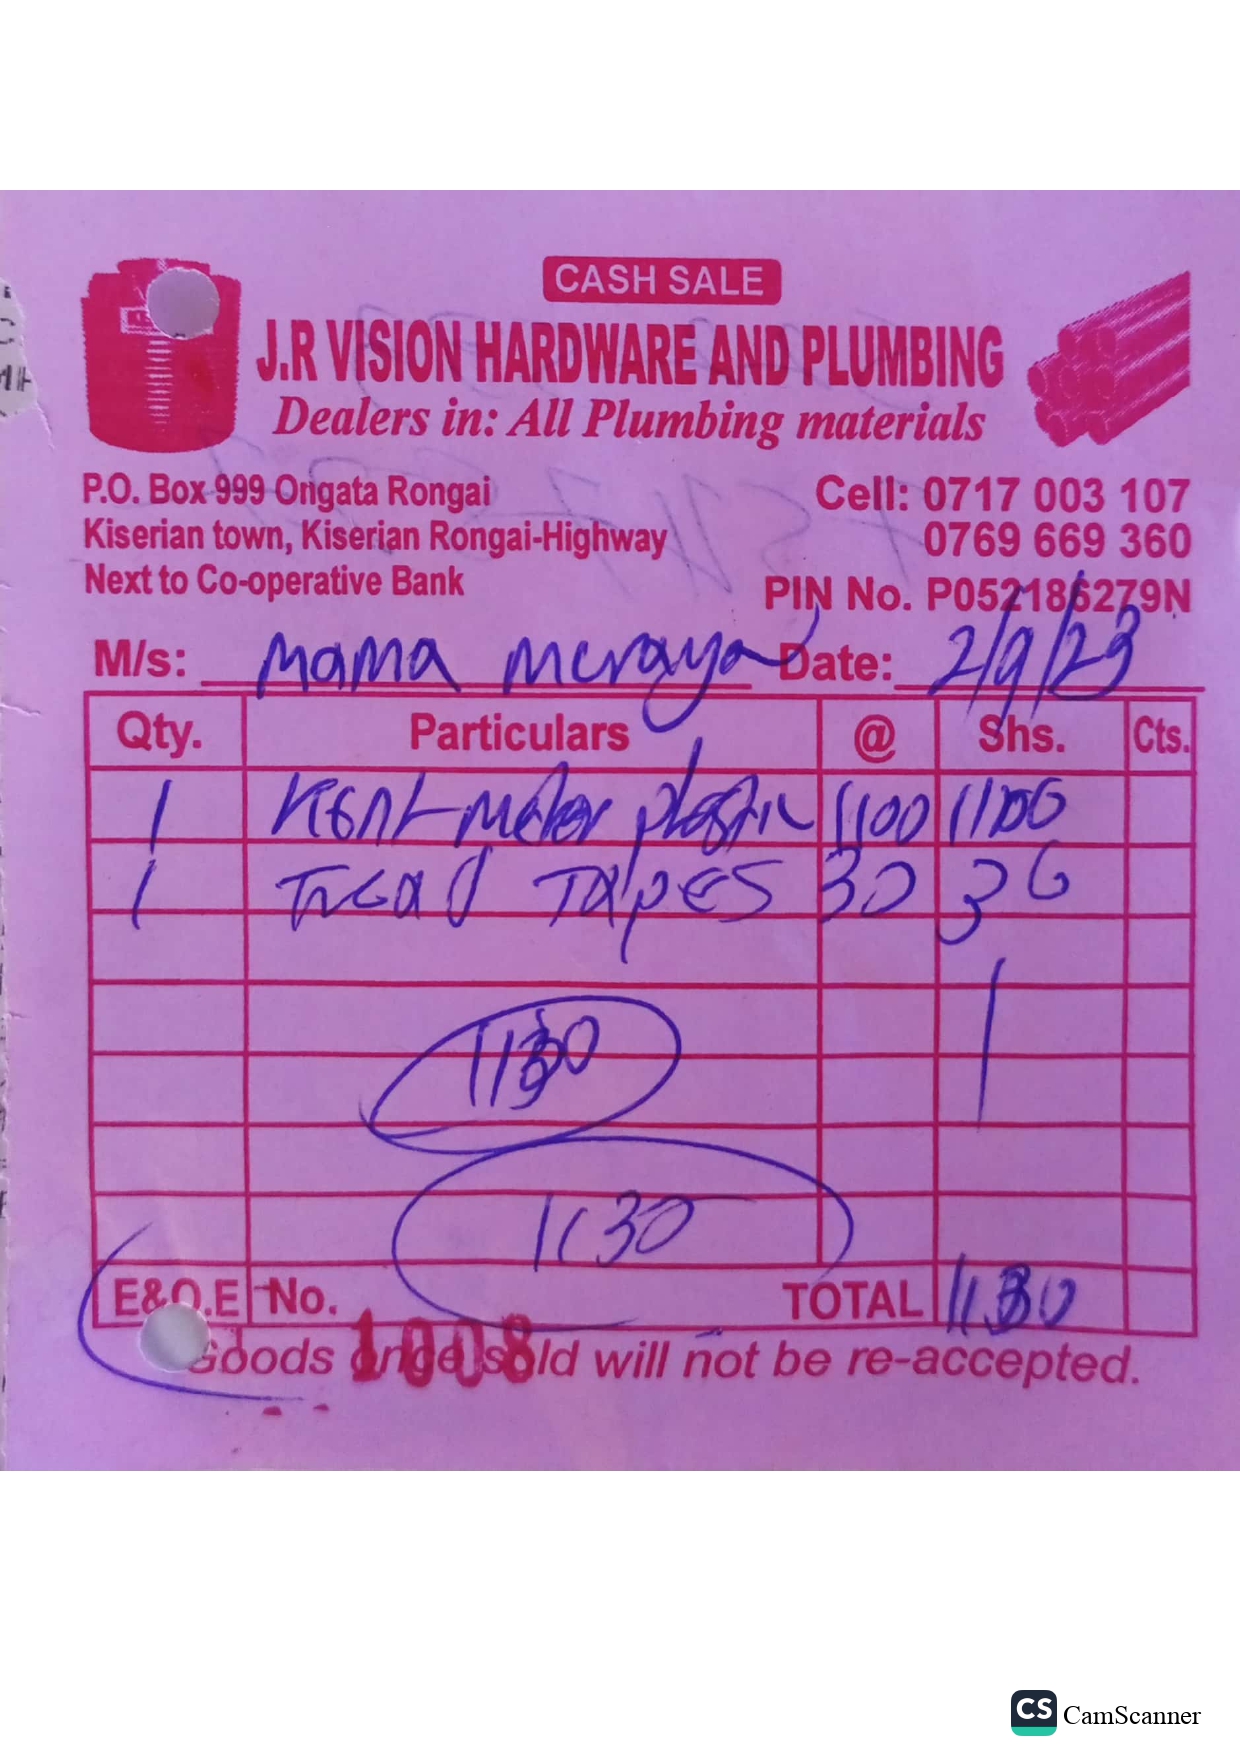 CASH SALE
J.R VISION HARDWARE AND PLUMBING
Dealers in: All Plumbing materials
P.O. Box 999 Ongata Rongai
Kiserian town, Kiserian Rongai-Highway
Next to Co-operative Bank
Cell: 0717 003 107
0769 669 360
PIN No. P052186279N
M/s: Mama Date: 2/9/23
Qty. Particulars @ Shs. Cts.
1 Kent meter plastic 1100 1100
1 Tread TAPES 30 30
1130
1130
E&O.E No. 1008 TOTAL 1130
Goods once sold will not be re-accepted.
CS CamScanner